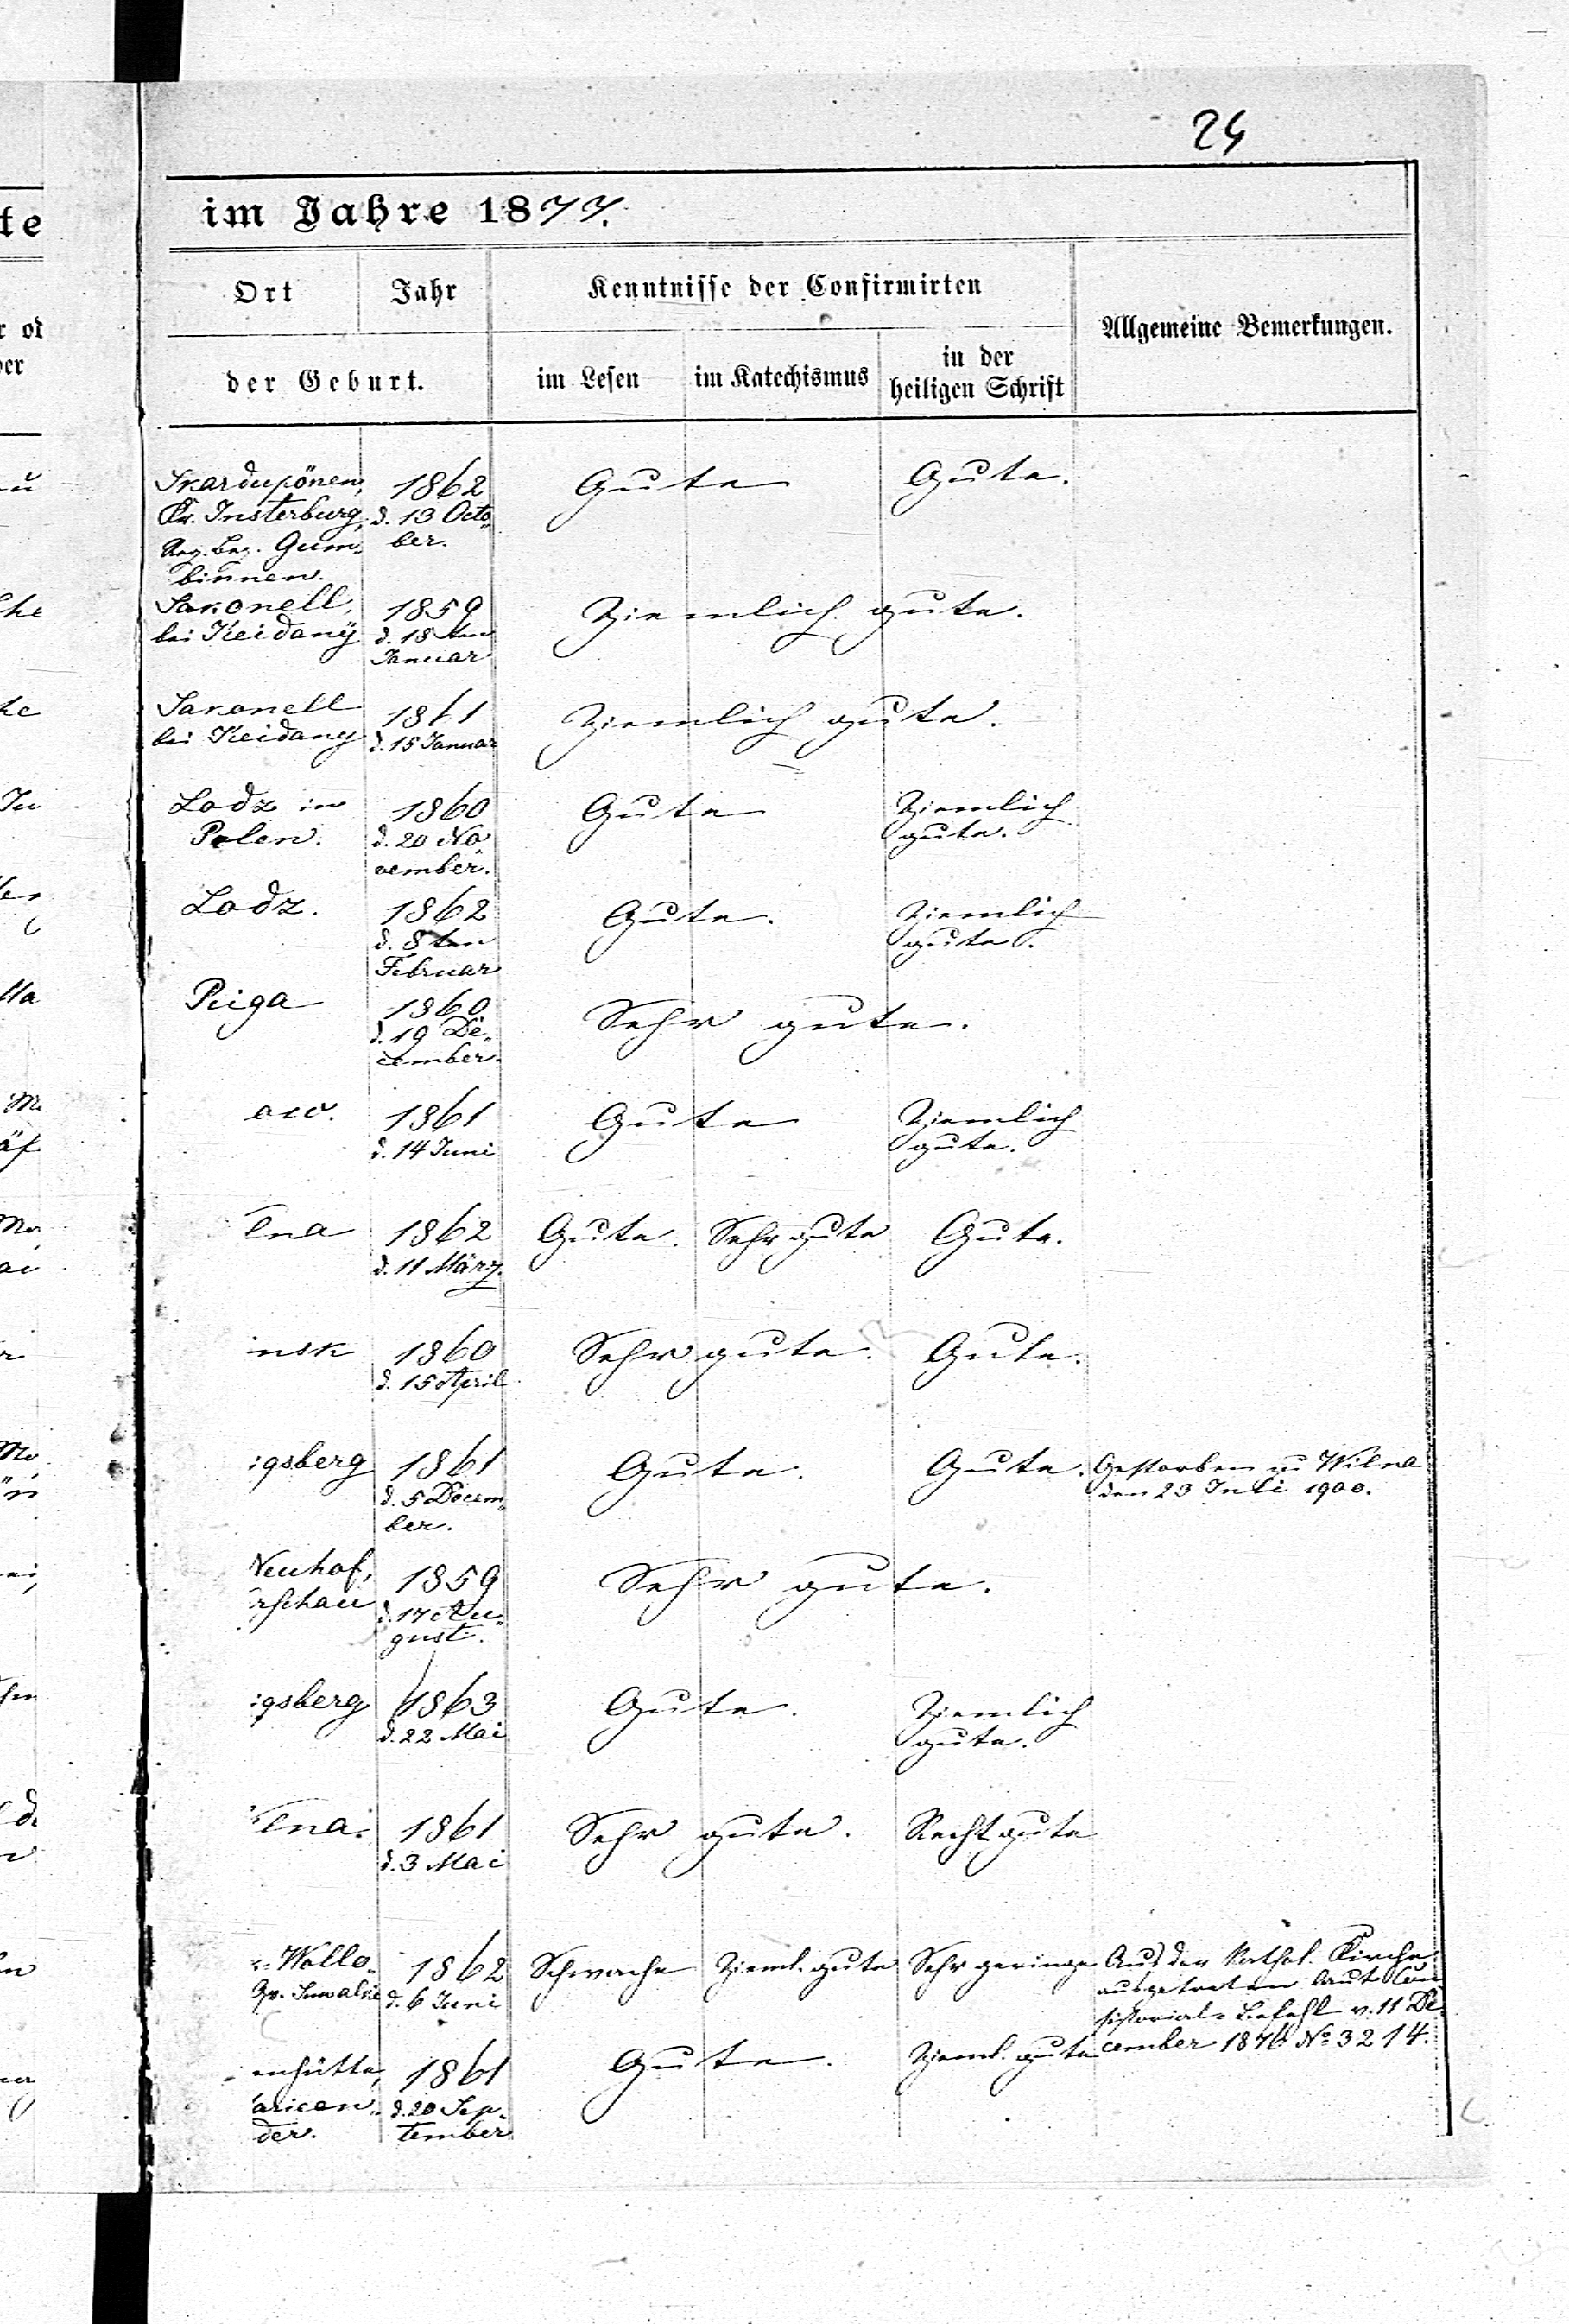 24
im Jahre 1877.
Ort Jahr Kenntnisse der Confirmirten Allgemeine Bemerkungen.
der Geburt. im Lesen im Katechismus in der heiligen Schrift
Skardupönen, 1862 Gute Gute.
Kr. Insterburg, d. 13 Octo„
Reg. Bez. Gum„ ber.
binnen.
1859 Ziemlich gute.
bei Keidany d. 18ten
Januar
1861 Ziemlich gute.
bei Keidany d. 15 Januar
Lodz in 1860 Gute Ziemlich
Polen. d. 20 No„ gute.
vember.
Lodz. 1862 Gute. Ziemlich
d. 8ten gute.
Februar
Riga 1860. Sehr gute.
d. 19 De„
cember.
1861 Gute Ziemlich
d. 14 Juni gute.
lna 1862 Gute. Sehr gute Gute.
d. 11 März.
insk 1860 Sehr gute. Gute.
d. 15 April
igsberg 1861 Gute. Gute. Gestorben zu Wilna
d. 5 Decem„ den 23 Juli 1900.
ber.
Neuhof, 1859 Sehr gute.
rschau d. 17 Au„
gust.
igsberg 1863 Gute. Ziemlich
d. 22 Mai gute.
lna. 1861 Sehr gute. Recht gute
d. 3 Mai
Wollo„ 1862 Schwache Zieml. gute Sehr geringe Aus der Kathol. Kirche
Gv. Suwalki d. 6 Juni ausgetreten laut Con
sistorial-Befehl v. 11 De„
cember 1876 No 3214.
enhütte, 1861 Gute. Zieml. gute
d. 20 Sep„
der. tember